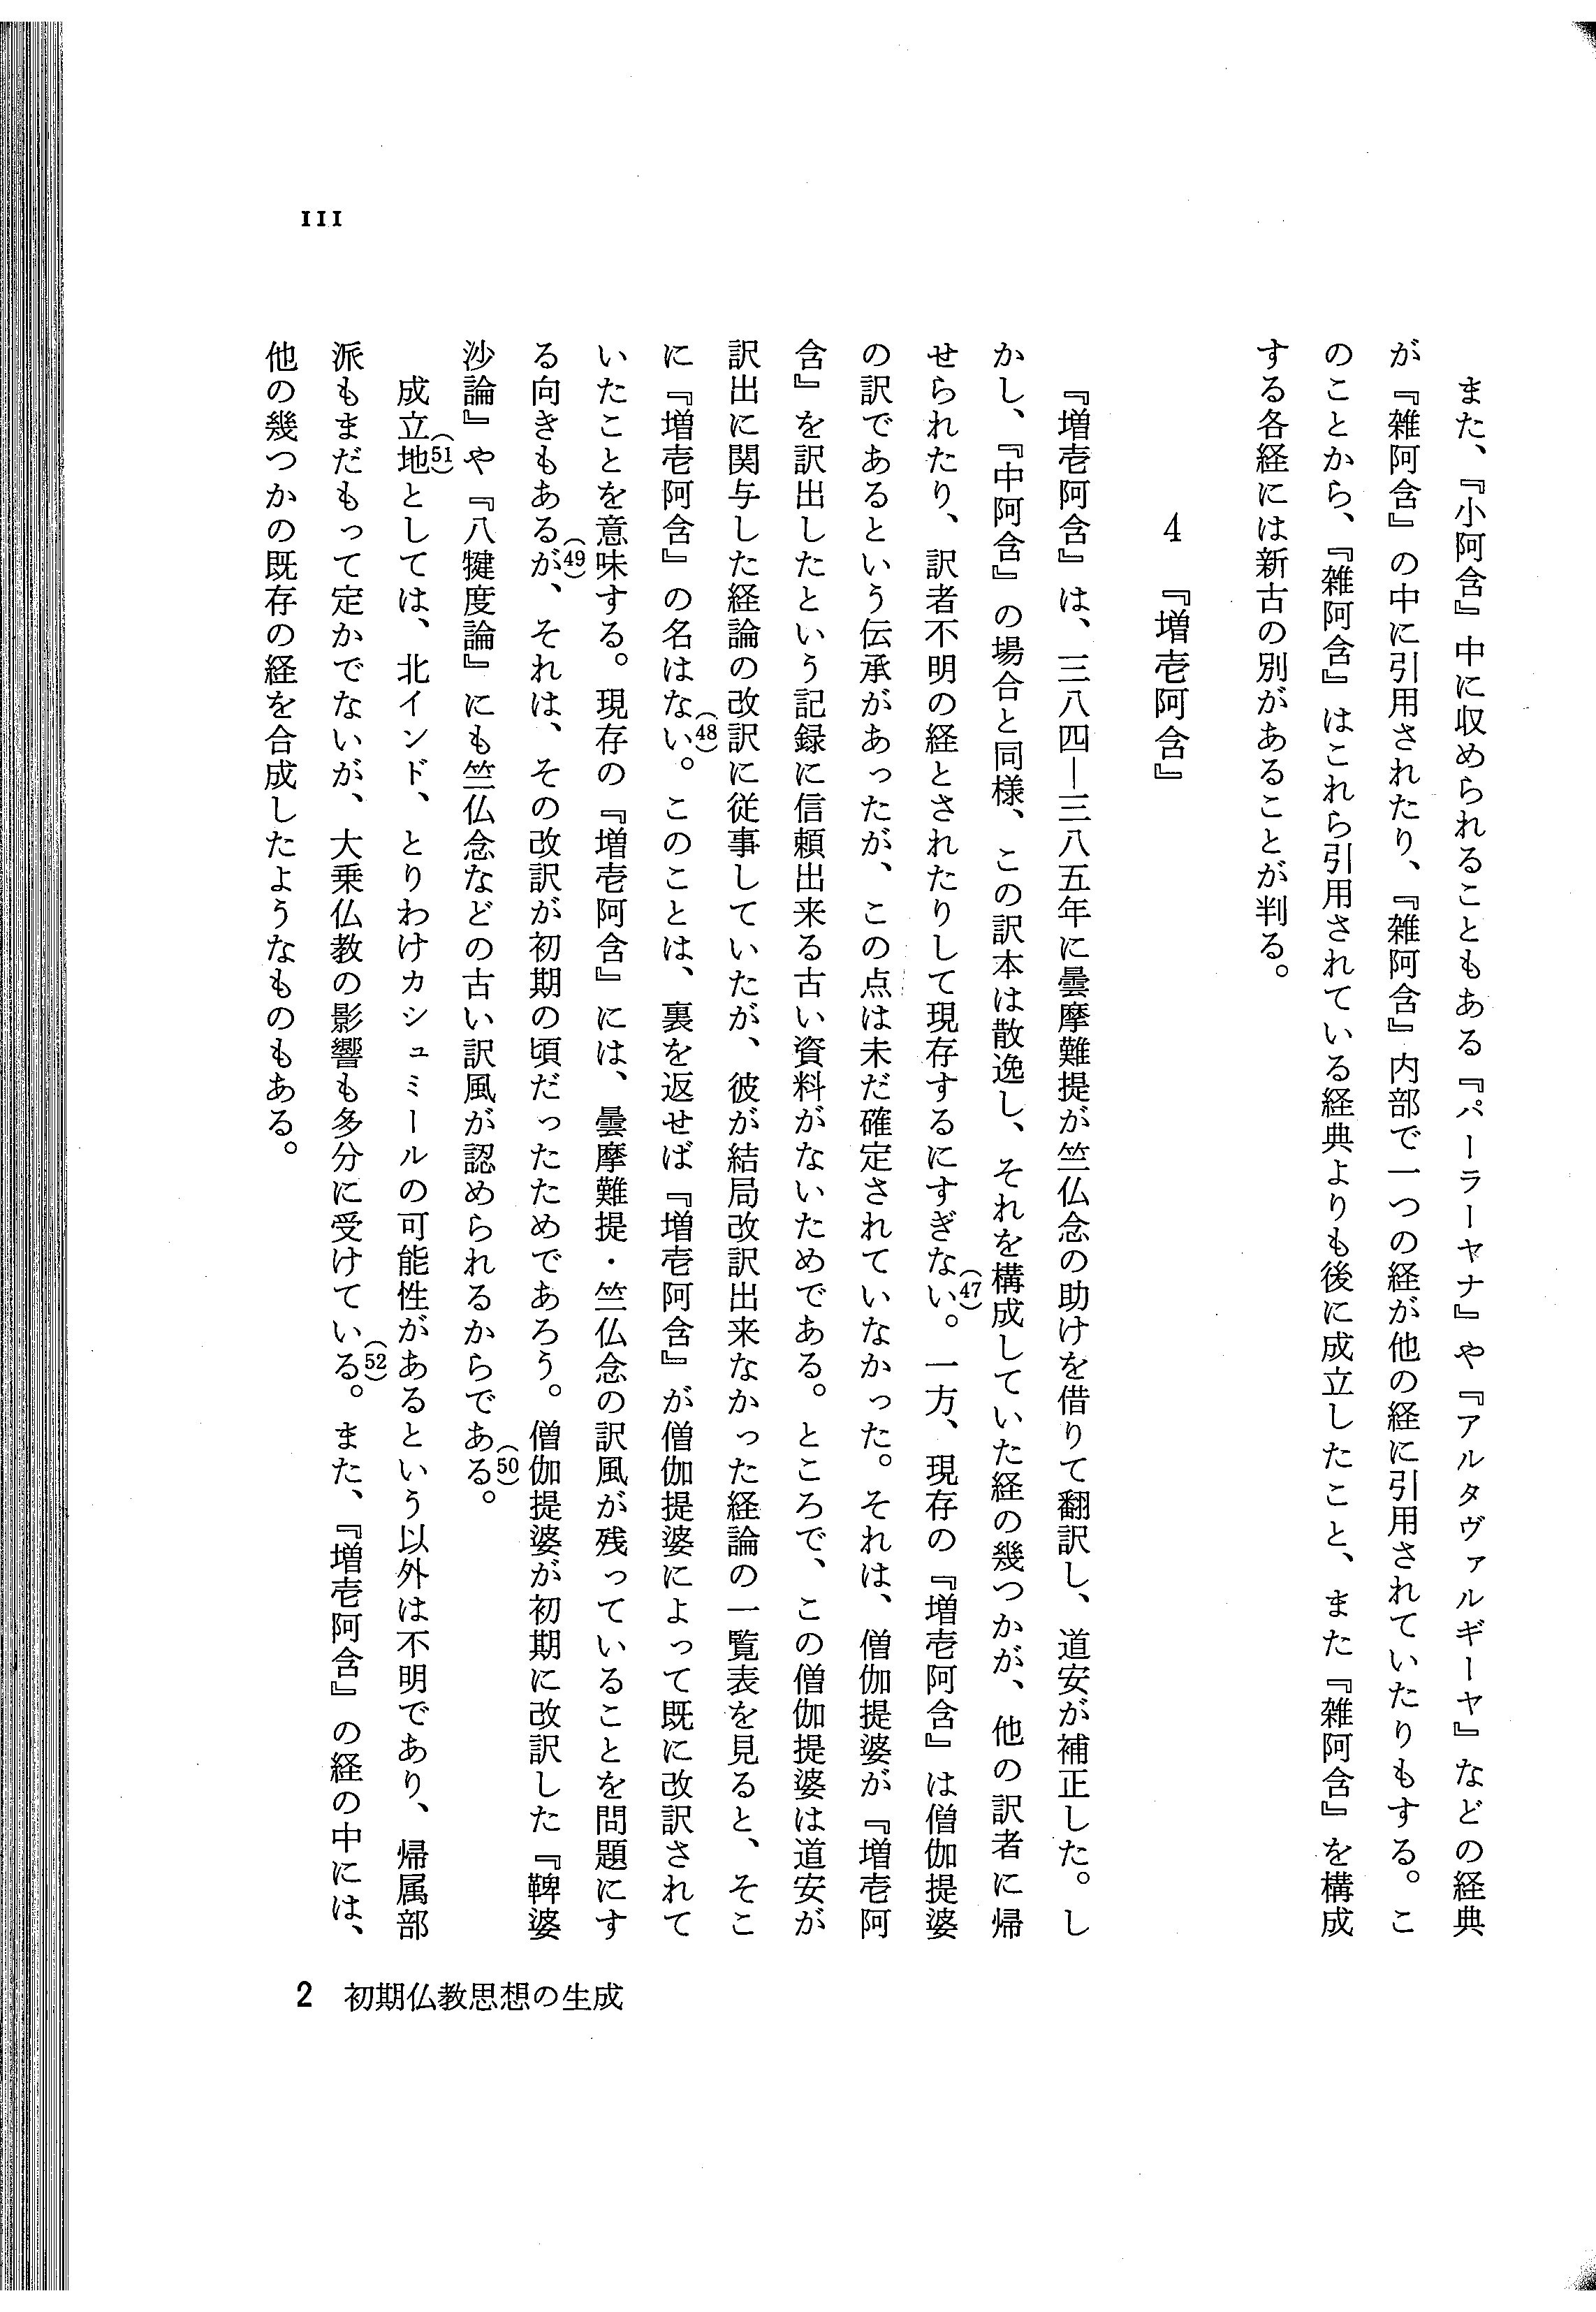 また、『小阿含』中に収められることもある『パーラーヤナ』や『アルタヴァルギーヤ』などの経典
が『雑阿含』の中に引用されたり、『雑阿含』内部で一つの経が他の経に引用されていたりもする。こ
のことから、『雑阿含』はこれら引用されている経典よりも後に成立したこと、また『雑阿含』を構成
する各経には新古の別があることが判る。
4 『増壱阿含』
『増壱阿含』は、三八四―三八五年に曇摩難提が竺仏念の助けを借りて翻訳し、道安が補正した。し
かし、『中阿含』の場合と同様、この訳本は散逸し、それを構成していた経の幾つかが、他の訳者に帰
せられたり、訳者不明の経とされたりして現存するにすぎない(47)。一方、現存の『増壱阿含』は僧伽提婆
の訳であるという伝承があったが、この点は未だ確定されていなかった。それは、僧伽提婆が『増壱阿
含』を訳出したという記録に信頼出来る古い資料がないためである。ところで、この僧伽提婆は道安が
訳出に関与した経論の改訳に従事していたが、彼が結局改訳出来なかった経論の一覧表を見ると、そこ
に『増壱阿含』の名はない(48)。このことは、裏を返せば『増壱阿含』が僧伽提婆によって既に改訳されて
いたことを意味する。現存の『増壱阿含』には、曇摩難提・竺仏念の訳風が残っていることを問題にす
る向きもあるが(49)、それは、その改訳が初期の頃だったためであろう。僧伽提婆が初期に改訳した『鞞婆
沙論』や『八犍度論』にも竺仏念などの古い訳風が認められるからである(50)。
成立地(51)としては、北インド、とりわけカシュミールの可能性があるという以外は不明であり、帰属部
派もまだもって定かでないが、大乗仏教の影響も多分に受けている(52)。また、『増壱阿含』の経の中には、
他の幾つかの既存の経を合成したようなものもある。
111
2 初期仏教思想の生成